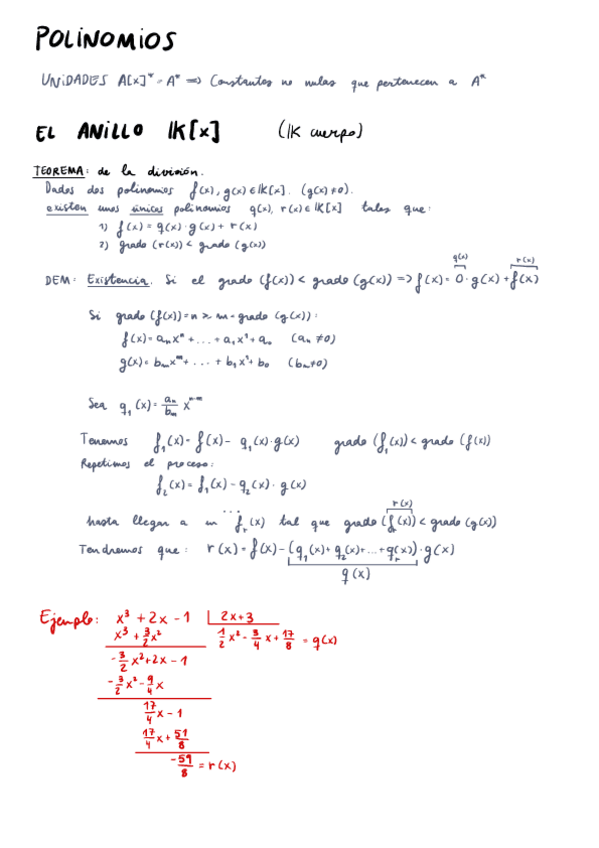 POLINOMIOS
UNIDADES A[x]* = A* => Constantes no nulas que pertenecen a A*
EL ANILLO IK[x] (IK cuerpo)
TEOREMA: de la división.
Dados dos polinomios f(x), g(x) ∈ IK[x]. (g(x) ≠ 0).
existen unos únicos polinomios q(x), r(x) ∈ IK[x] tales que:
1) f(x) = q(x) · g(x) + r(x)
2) grado (r(x)) < grado (g(x))
q(x) r(x)
DEM: Existencia. Si el grado (f(x)) < grado (g(x)) => f(x) = 0 · g(x) + f(x)
Si grado (f(x)) = n ≥ m = grado (g(x)):
f(x) = aₙxⁿ + ... + a₁x¹ + a₀ (aₙ ≠ 0)
g(x) = bₘxᵐ + ... + b₁x¹ + b₀ (bₘ ≠ 0)
Sea q₁(x) = aₙ/bₘ xⁿ⁻ᵐ
Tenemos f₁(x) = f(x) - q₁(x) · g(x) grado (f₁(x)) < grado (f(x))
Repetimos el proceso:
f₂(x) = f₁(x) - q₂(x) · g(x)
...
r(x)
hasta llegar a un fᵣ(x) tal que grado (fᵣ(x)) < grado (g(x))
Tendremos que: r(x) = f(x) - (q₁(x) + q₂(x) + ... + qᵣ(x)) · g(x)
q(x)
Ejemplo: x³ + 2x - 1 | 2x + 3
x³ + 3/2 x² 1/2 x² - 3/4 x + 17/8 = q(x)
-3/2 x² + 2x - 1
-3/2 x² - 9/4 x
17/4 x - 1
17/4 x + 51/8
-59/8 = r(x)